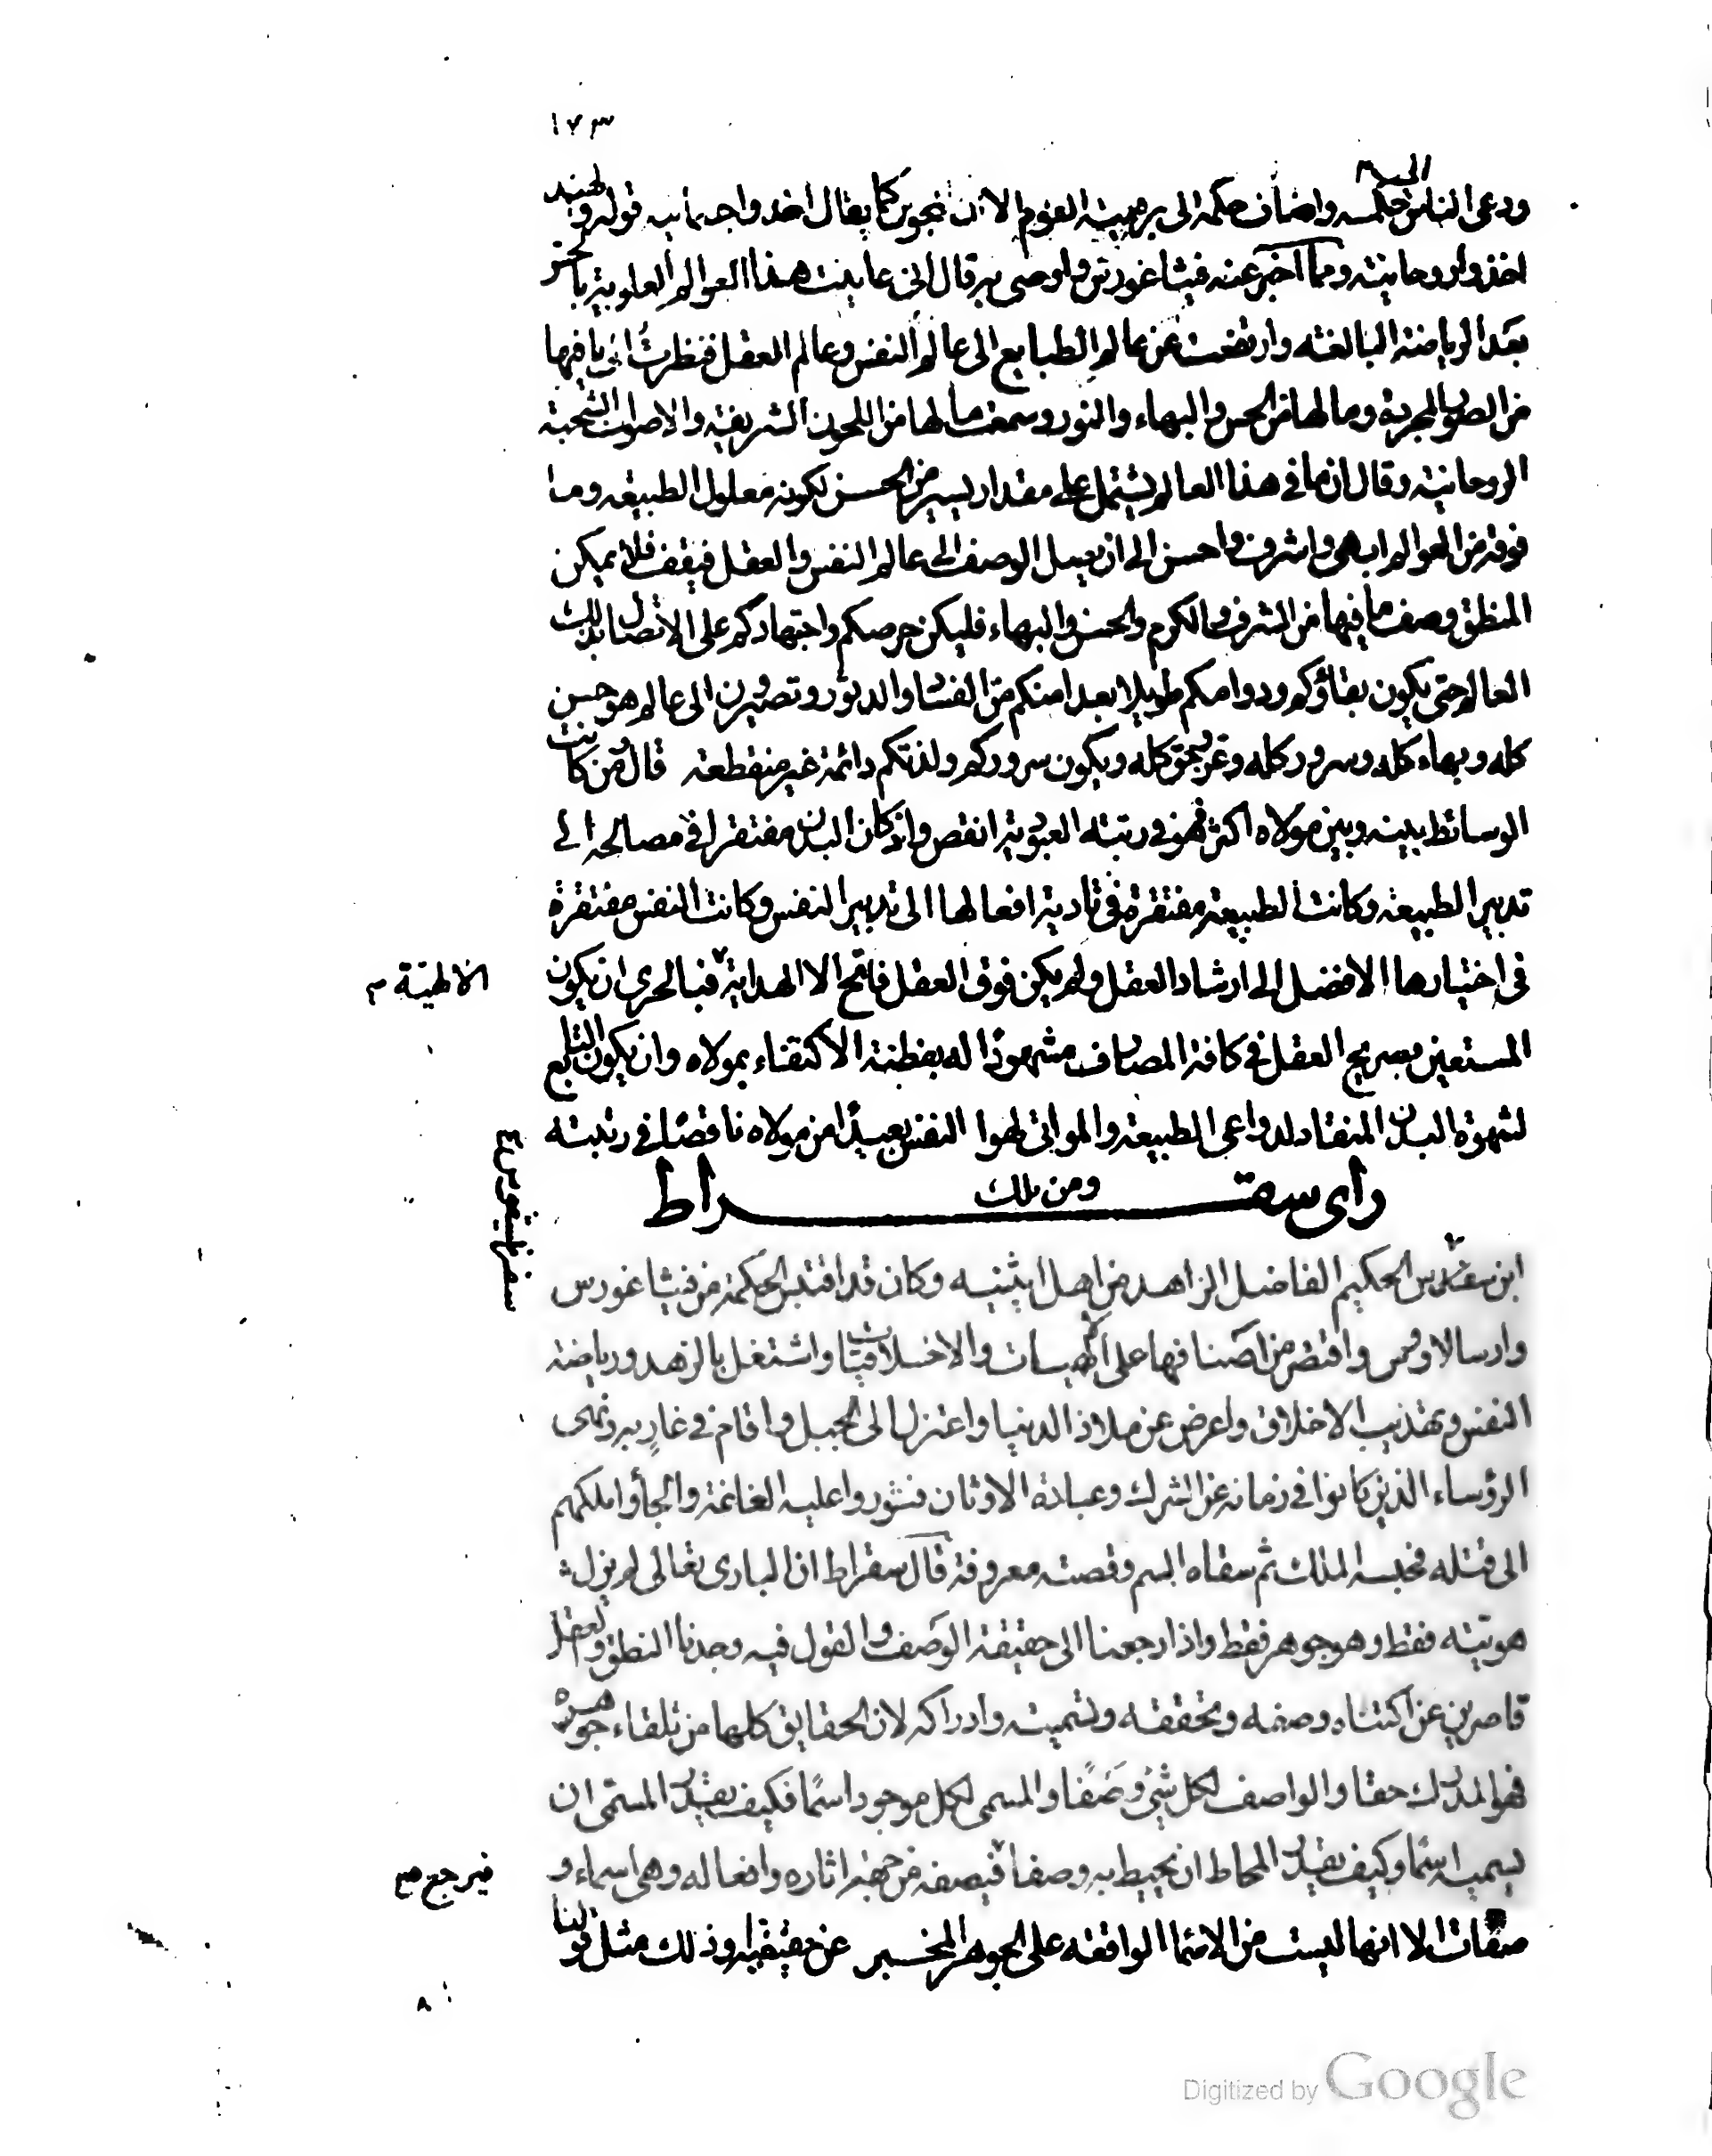 ١٧٣
الى
ودعى الناس حكمته واضاف حكمه الى برهمية القوم الا ان كما يقال اخذ واحد قوله والهند
اخذوا روحانيته ومما اخبر عنه فيثاغورس واوصى به قال انى عاينت هذا العوالم العلوية بالحس
بعد الرياضة البالغة وارتفعت عن عالم الطبايع الى عالم النفس وعالم العقل فنظرت الى ما فيها
من الصور المجردة وما لها من الحسن والبهاء والنور وسمعت ما لها من اللحون الشريفة والاصوات الشجية
الروحانية وقال ان ما فى هذا العالم يشتمل على مقدار يسير من الحسن لكونه معلول الطبيعة وما
فوقه من العوالم ابهى واشرف واحسن الى ان يصل الوصف الى عالم النفس والعقل فيقف فلا يمكن
المنطق وصف ما فيها من الشرف والكرم والحسن والبهاء فليكن حرصكم واجتهادكم على الاتصال بذلك
العالم حتى يكون بقاؤكم ودوامكم طويلا بعد امنكم من الفساد والدثور وتصيرون الى عالم هو حسن
كله وبهاء كله وسرور كله وعز وحق كله ويكون سروركم ولذتكم دائمة غير منقطعة قال ومن كانت
الوسائط بينه وبين مولاه اكثر فهو فى رتبته العبودية انقص واذ كان البدن مفتقرا فى مصالحه الى
تدبير الطبيعة وكانت الطبيعة مفتقرة فى تادية افعالها الى تدبير النفس وكانت النفس مفتقرة
فى اختيارها الافضل الى ارشاد العقل ولم يكن فوق العقل فاتح الا الهداية فبالحرى ان يكون
الالهية
المستعين بصريح العقل فى كافة المصارف مشهودا له بفطنة الاكتفاء بمولاه وان يكون التابع
لشهوة البدن المنقاد لدواعى الطبيعة والمواتى لهوا النفس بعيدا من مولاه ناقصا فى رتبته
ومن ذلك
راى سقراط
ابن الحكيم الفاضل الزاهد من اهل اثينيه وكان قد اقتبس الحكمة من فيثاغورس
سفرنيسقوس
وارسالاوس واقتصر من اصنافها على الالهيات والاخلاقيات واشتغل بالزهد ورياضة
النفس وتهذيب الاخلاق واعرض عن ملاذ الدنيا واعتزل الى الجبل واقام فى غار به ونهى
الرؤساء الذين كانوا فى زمانه عن الشرك وعبادة الاوثان فثوروا عليه الغاغة والجأوا ملكهم
الى قتله فحبسه الملك ثم سقاه السم وقصته معروفة قال سقراط ان البارى تعالى لم يزل
هويته فقط وهو جوهر فقط واذا رجعنا الى حقيقة الوصف والقول فيه وجدنا النطق والعقل
قاصرين عن اكتناه وصفه وتحققه وتسميته وادراكه لان الحقايق كلها من تلقاء جوهره
فهو المدرك حقا والواصف لكل شئ وصفا والمسمى لكل موجود اسما فكيف يقدر المسمى ان
يسميه اسما وكيف يقدر المحاط ان يحيط به وصفا فيصفه من جهة اثاره وافعاله وهى اسماء و
فيرجع صح
صفات الا انها ليست من الاسما الواقعة على الجوهر المخبر عن حقيقته وذلك مثل قولنا
Digitized by Google